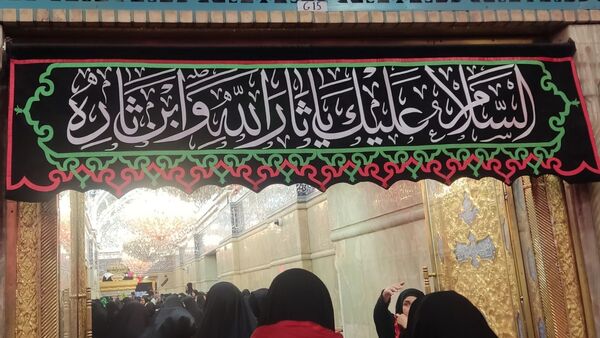 G15
السَّلامُ عَلَيْكَ يا ثارَ اللهِ وَابْنَ ثارِهِ